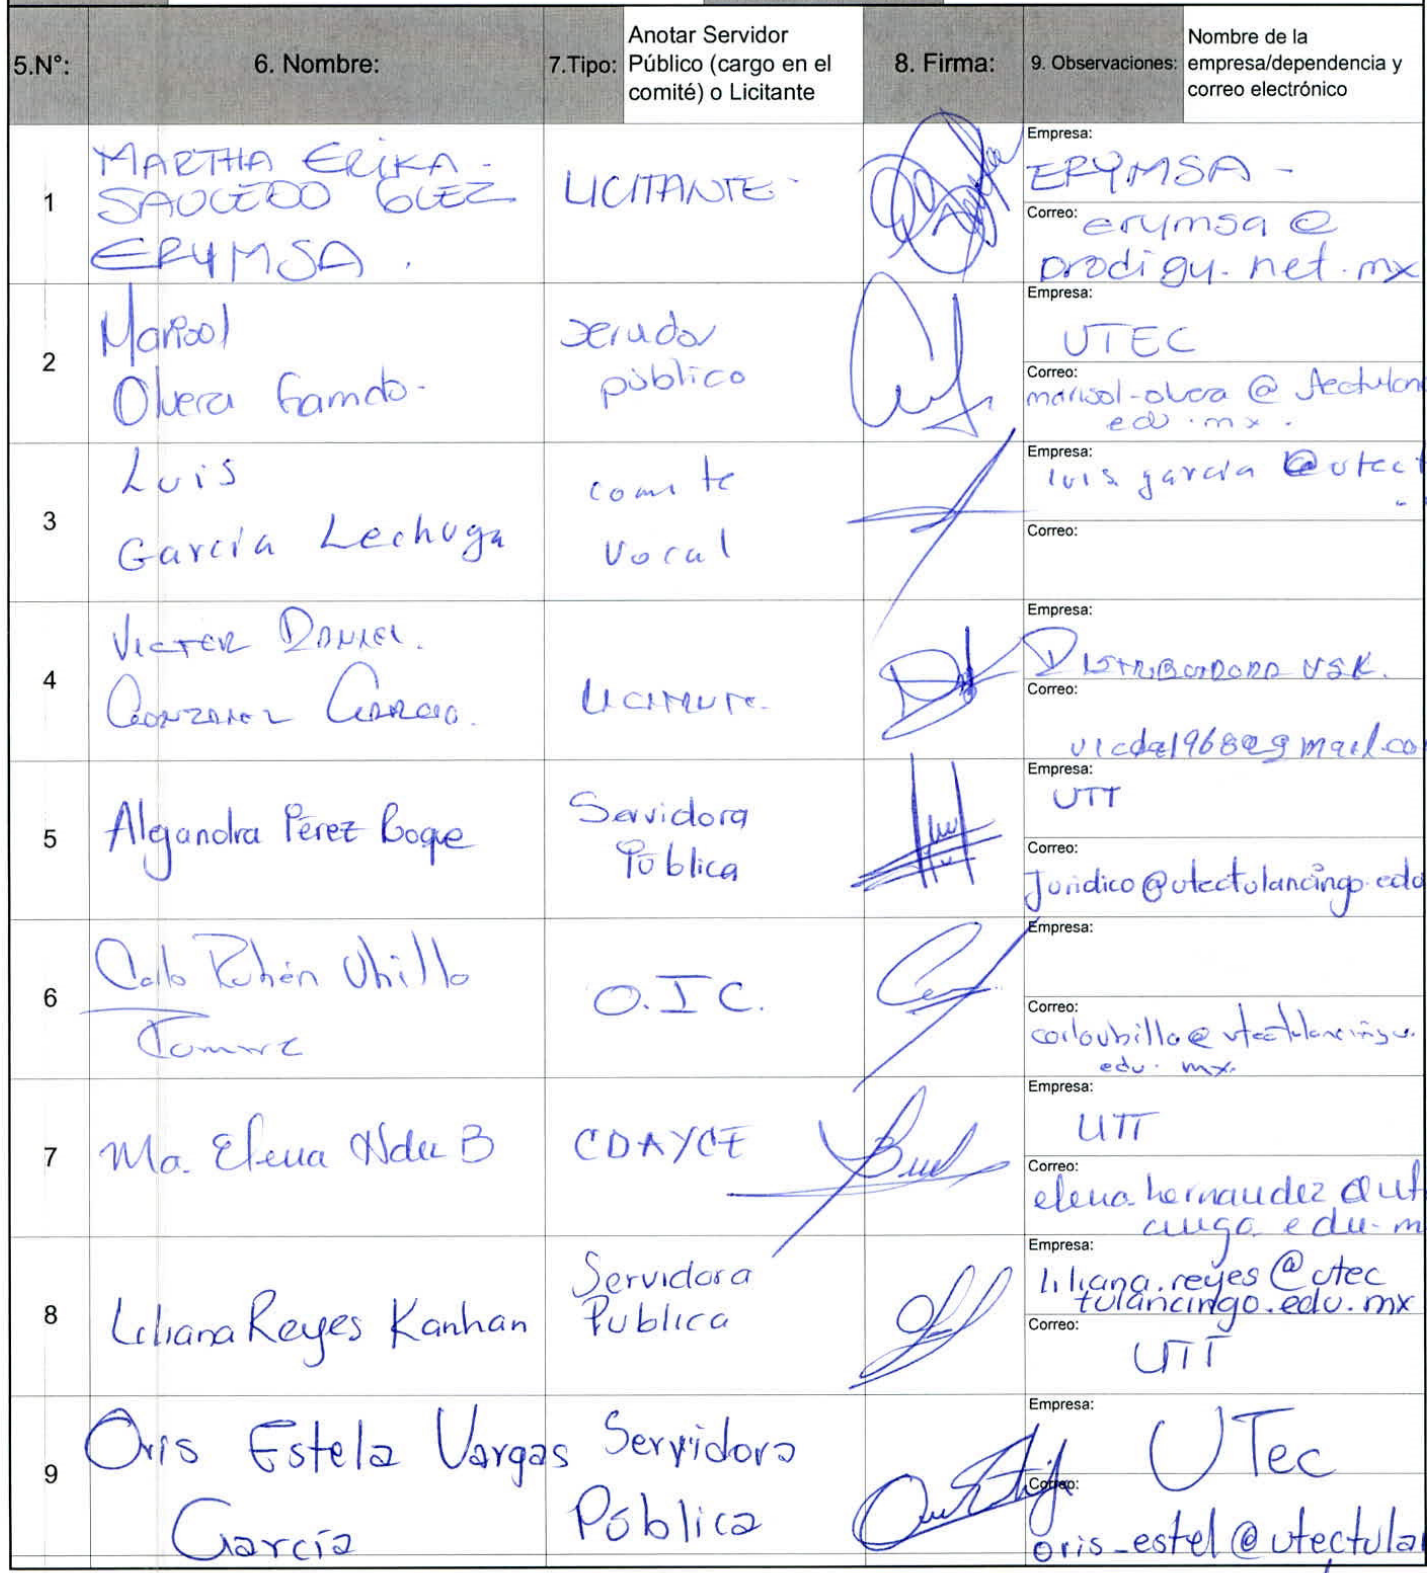 5.N°:
6. Nombre:
7.Tipo:
Anotar Servidor
Público (cargo en el
comité) o Licitante
8. Firma:
9. Observaciones:
Nombre de la
empresa/dependencia y
correo electrónico
1
MARTHA ERIKA -
SAUCEDO GLEZ
ERYMSA .
LICITANTE -
Empresa:
ERYMSA -
Correo:
erymsa @
prodigy. net. mx
2
Marisol
Olvera
servidor
público
Empresa:
UTEC
Correo:
marisol-olvera @
edu . mx .
3
Luis
García Lechuga
comite
Vocal
Empresa:
luis garcía @utec
Correo:
4
VICTOR DANIEL.
GONZALEZ GARCIA.
LICITANTE.
Empresa:
DISTRIBUIDORA VSK.
Correo:
@gmail.co
5
Alejandra Pérez
Servidora
Pública
Empresa:
UTT
Correo:
Juridico@utectulancingo.edu
6
Rubén
O.I C.
Empresa:
Correo:
edu. mx.
7
Ma. Elena Hdez B
CDAYCE
Empresa:
UTT
Correo:
elena.hernandez @ut
edu. m
8
Liliana Reyes Kanhan
Servidora
Publica
Empresa:
liliana.reyes @utec
tulancingo.edu.mx
Correo:
UTT
9
Oris Estela Vargas
García
Servidora
Pública
Empresa:
UTec
Correo:
oris_estel@utectula